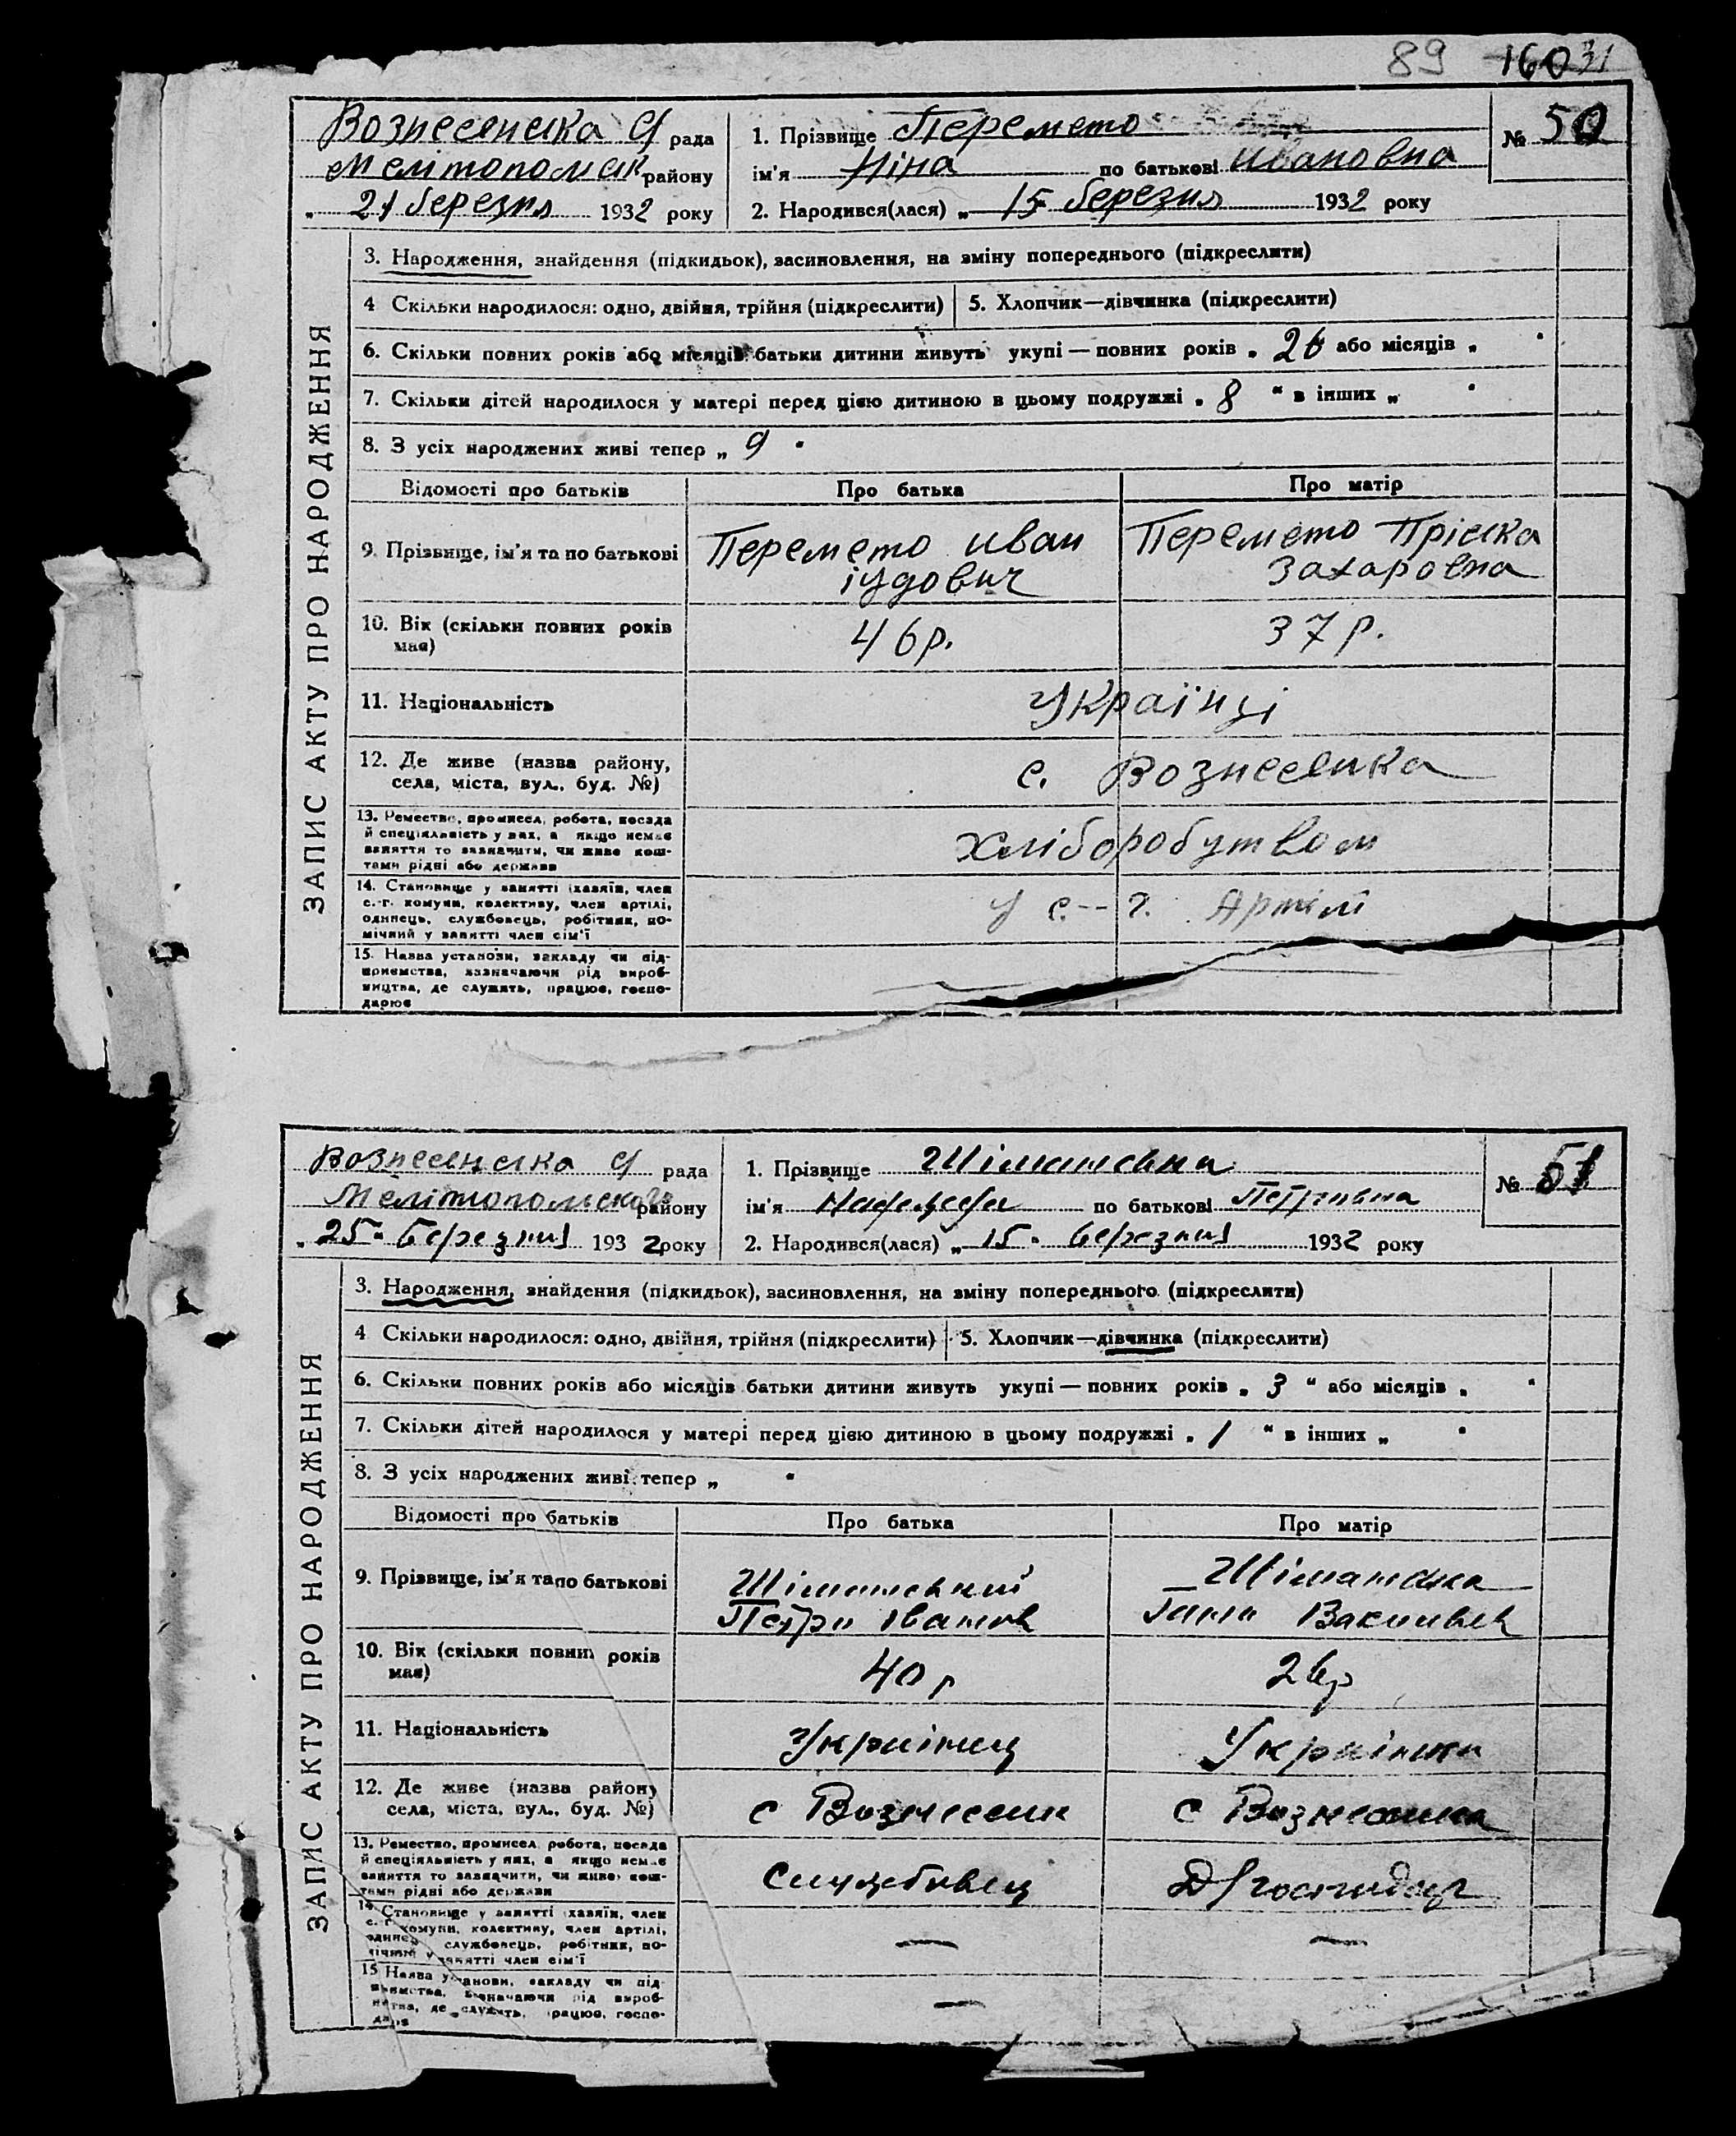 89 160 31
Вознесенска с/рада
Мелітопольск району
„ 21 березня 1932 року
1. Прізвище Перемето
ім'я Ніна по батькові Ивановна
2. Народився(лася) „ 15 березня 1932 року
№ 50
ЗАПИС АКТУ ПРО НАРОДЖЕННЯ
3. Народження, знайдення (підкидьок), засиновлення, на зміну попереднього (підкреслити)
4 Скільки народилося: одно, двійня, трійня (підкреслити) 5. Хлопчик—дівчинка (підкреслити)
6. Скільки повних років або місяців батьки дитини живуть укупі — повних років „ 26 або місяців „ "
7. Скільки дітей народилося у матері перед цією дитиною в цьому подружжі „ 8 " в інших „ "
8. З усіх народжених живі тепер „ 9 "
Відомості про батьків Про батька Про матір
9. Прізвище, ім'я та по батькові
Перемето Иван
іудович
Перемето Пріська
Захаровна
10. Вік (скільки повних років
має)
46 р.
37 р.
11. Національність
Українці
12. Де живе (назва району,
села, міста, вул., буд. №)
с. Вознесенка
13. Ремество, промисел, робота, посада
й спеціяльність у них, а якщо немає
заняття то зазначити, чи живе кош-
тами рідні або держави
хліборобутвом
14. Становище у занятті (хазяїн, член
с.-г. комуни, колективу, член артілі,
одинець, службовець, робітник, по-
мічний у занятті член сім'ї
у с.--г. Артілі
15. Назва установи, закладу чи під-
приємства, зазначаючи рід вироб-
ництва, де служить, працює, госпо-
дарює
Вознесенська с/рада
Мелітопольського району
„ 25 " березня 1932 року
1. Прізвище
ім'я по батькові Петрівна
2. Народився(лася) „ 15 " березня 1932 року
№ 51
ЗАПИС АКТУ ПРО НАРОДЖЕННЯ
3. Народження, знайдення (підкидьок), засиновлення, на зміну попереднього (підкреслити)
4 Скільки народилося: одно, двійня, трійня (підкреслити) 5. Хлопчик—дівчинка (підкреслити)
6. Скільки повних років або місяців батьки дитини живуть укупі — повних років „ 3 " або місяців „ "
7. Скільки дітей народилося у матері перед цією дитиною в цьому подружжі „ 1 " в інших „ "
8. З усіх народжених живі тепер „ "
Відомості про батьків Про батька Про матір
9. Прізвище, ім'я та по батькові
Петро Іванов
10. Вік (скільки повних років
має)
40 р
26 р
11. Національність
Українец
Українка
12. Де живе (назва району
села, міста, вул., буд. №)
с Вознесенк
с Вознесенка
13. Ремество, промисел, робота, посада
й спеціяльність у них, а якщо немає
заняття то зазначити, чи живе кош-
тами рідні або держави
Службовец
14. Становище у занятті (хазяїн, член
с.-г. комуни, колективу, член артілі,
одинец службовець, робітник, по-
мічний у занятті член сім'ї
— —
15 Назва установи, закладу чи під-
приємства, зазначаючи рід вироб-
ництва, де служить, працює, госпо-
дарює
—